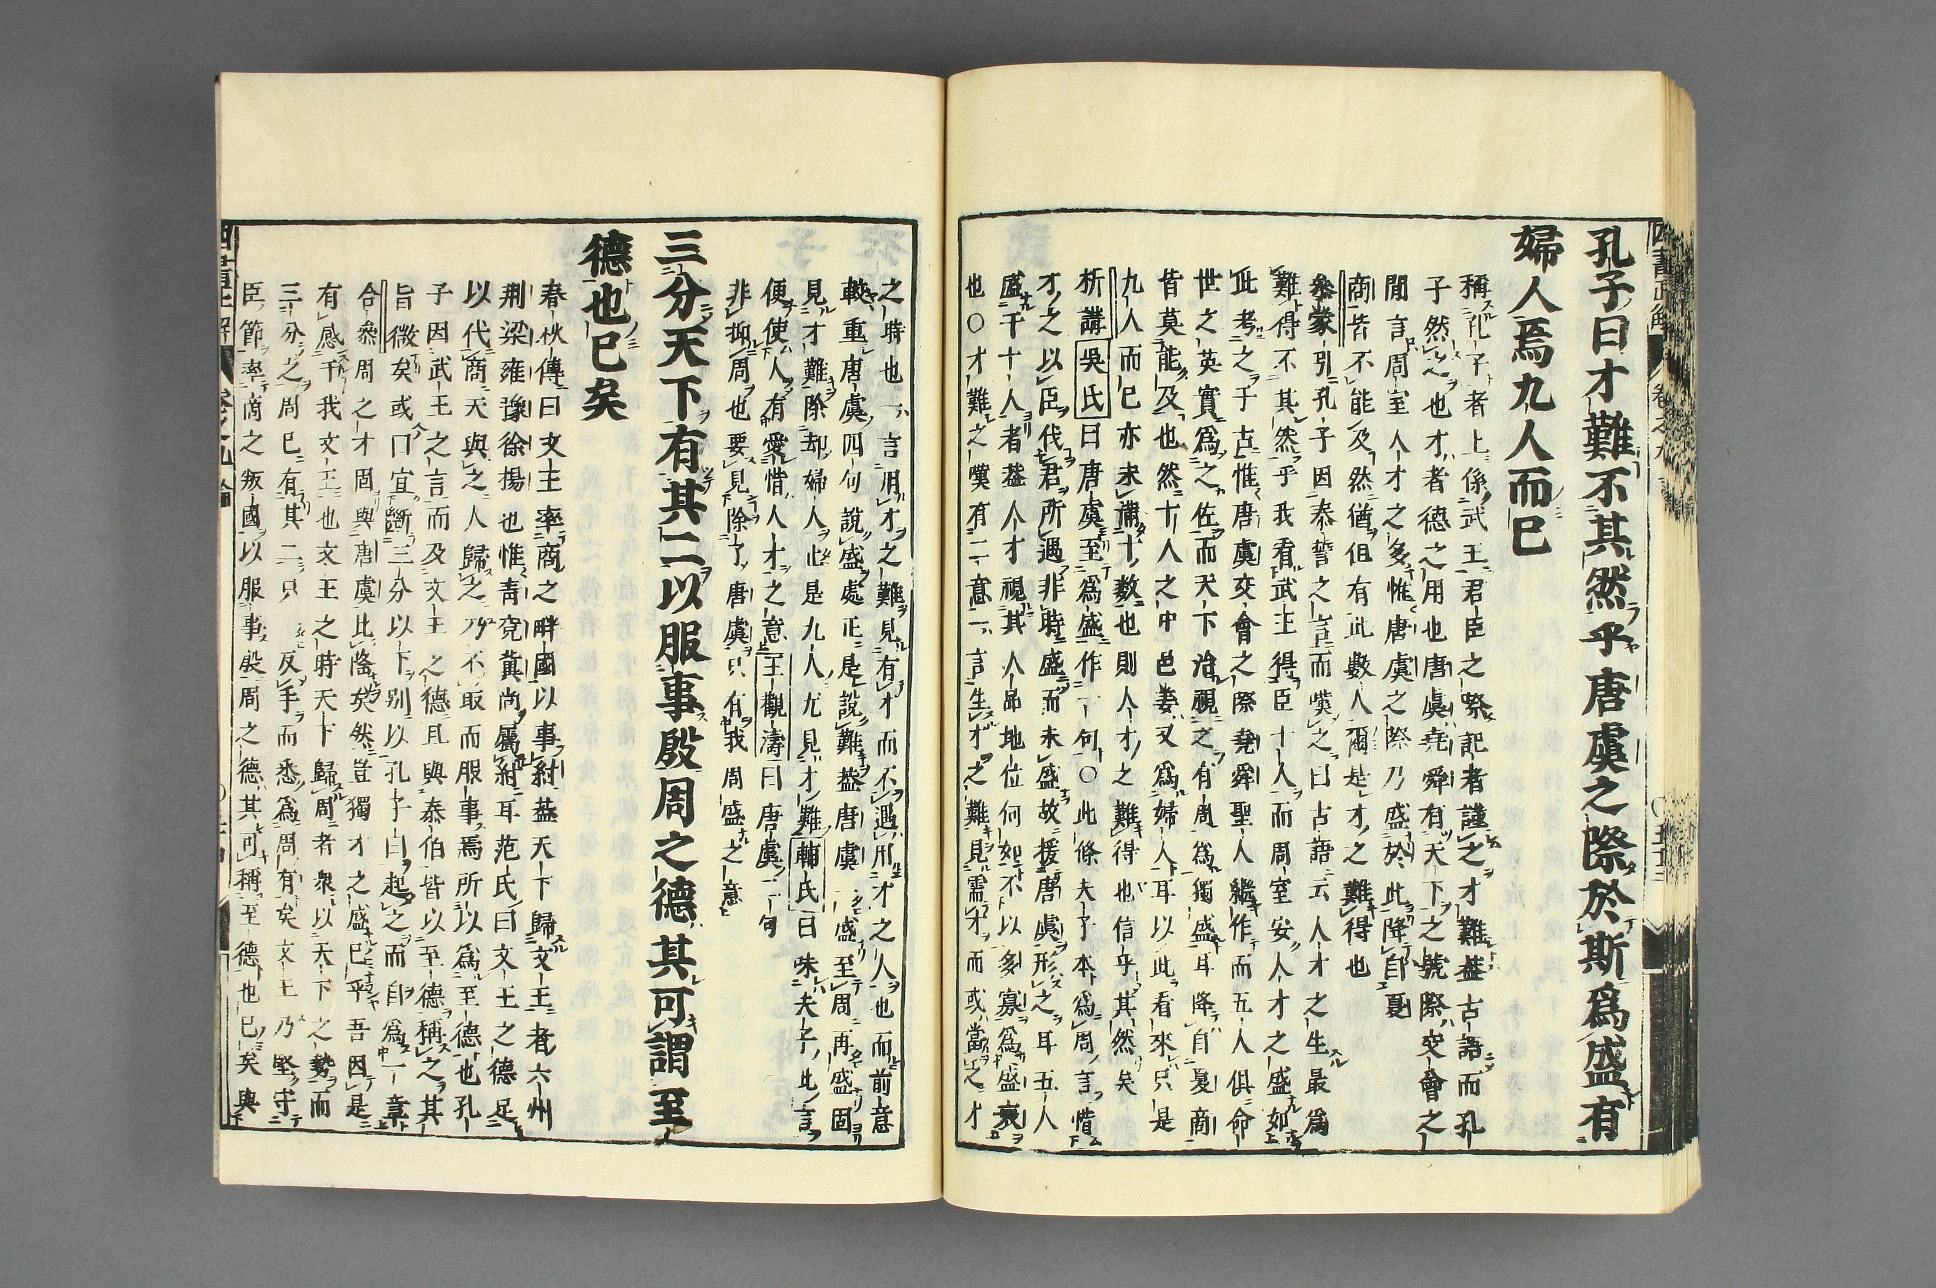 孔子曰才難不其然乎唐虞之際於斯爲盛有
婦人焉九人而已
稱孔子者上係武王君臣之際記者謹之才難蓋古語而孔
子然之也才者德之用也唐虞堯舜有天下之號際交會之
間言周室人才之多惟唐虞之際乃盛於此降自夏
商皆不能及然猶但有此數人爾是才之難得也
參蒙引孔子因泰誓之言而嘆之曰古語云人才之生最爲
難得不其然乎我看武王得臣十人而周室安人才之盛如
此考之于古惟唐虞交會之際堯舜聖人繼作而五人俱命
世之英實爲之佐而天下治視之有周爲獨盛耳降自夏商
皆莫能及也然十人之中邑姜又爲婦人耳以此看來只是
九人而已亦未滿十數也則人才之難得也信乎其然矣
析講吳氏曰唐虞至爲盛作一句〇此條夫子本爲周言惜
才之以臣代君所遇非時盛而未盛故援唐虞形之耳五人
盛于十人者蓋人才視其人品地位何如不以多寡爲盛衰
也〇才難之嘆有二意一言生才之難見需才而或當之才
之時也一言用才之難見有才而不遇用才之人也而前意
較重唐虞四句說盛處正是說難蓋唐虞盛至周再盛固
見才難除却婦人止是九人尤見才難輔氏曰味夫子此言
便使人有愛惜人才之意王觀濤曰唐虞二句
非抑周也要見除了唐虞只有我周盛之意
三分天下有其二以服事殷周之德其可謂至
德也已矣
春秋傳曰文王率商之畔國以事紂蓋天下歸文王者六州
荆梁雍豫徐揚也惟青兗冀尚屬紂耳范氏曰文王之德足
以代商天與之人歸之乃不取而服事焉所以爲至德也孔
子因武王之言而及文王之德且與泰伯皆以至德稱之其
旨微矣或曰宜斷三分以下别以孔子曰起之而自爲一章
合參周之才固與唐虞比隆矣然豈獨才之盛已乎吾因是
有感于我文王也文王之時天下歸周者衆以天下之勢而
三分之周已有其二只反手而悉爲周有矣文王乃堅守
臣節率商之叛國以服事殷周之德其可稱至德也已矣與